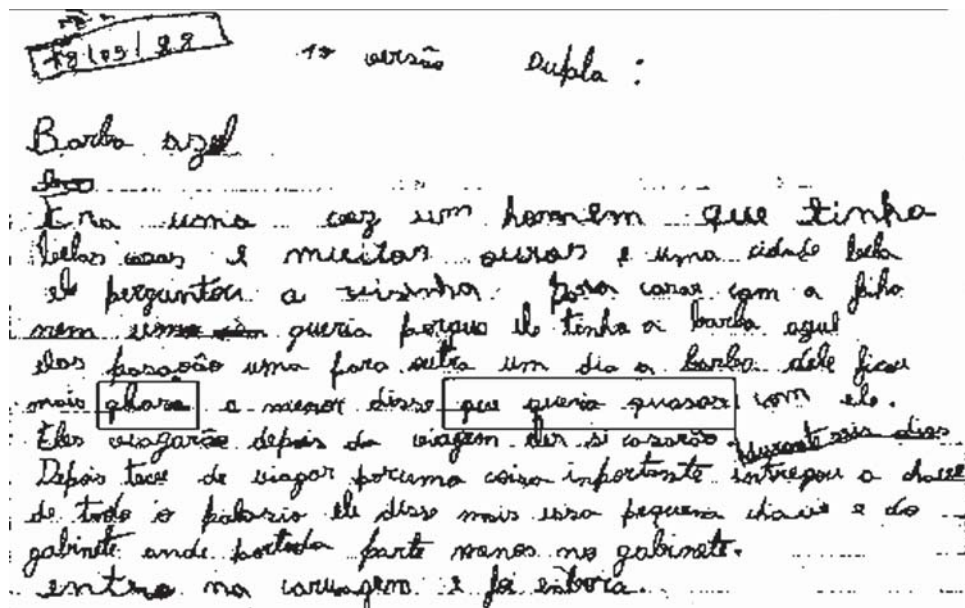 18/05/98 1ª versão Dupla :
Barba azul
Era uma vez um homem que tinha
belas casas e muitas ouros e uma cidade bela
ele perguntou a visinha para casar com a filha
nem uma queria porque ele tinha a barba azul
elas pasavão uma para outra um dia a barba dele ficou
mais qhara a menor disse que queria quasar com ele.
Eles viagarão depois da viagem eles si casarão durante seis dias
Depois teve de viagar porcuma coisa inportante intregou a chave
de todo o palasio ele disse mais essa pequena chave e do
gabinete ande portoda parte menos no gabinete.
entrou na caruagem e foi enbora.